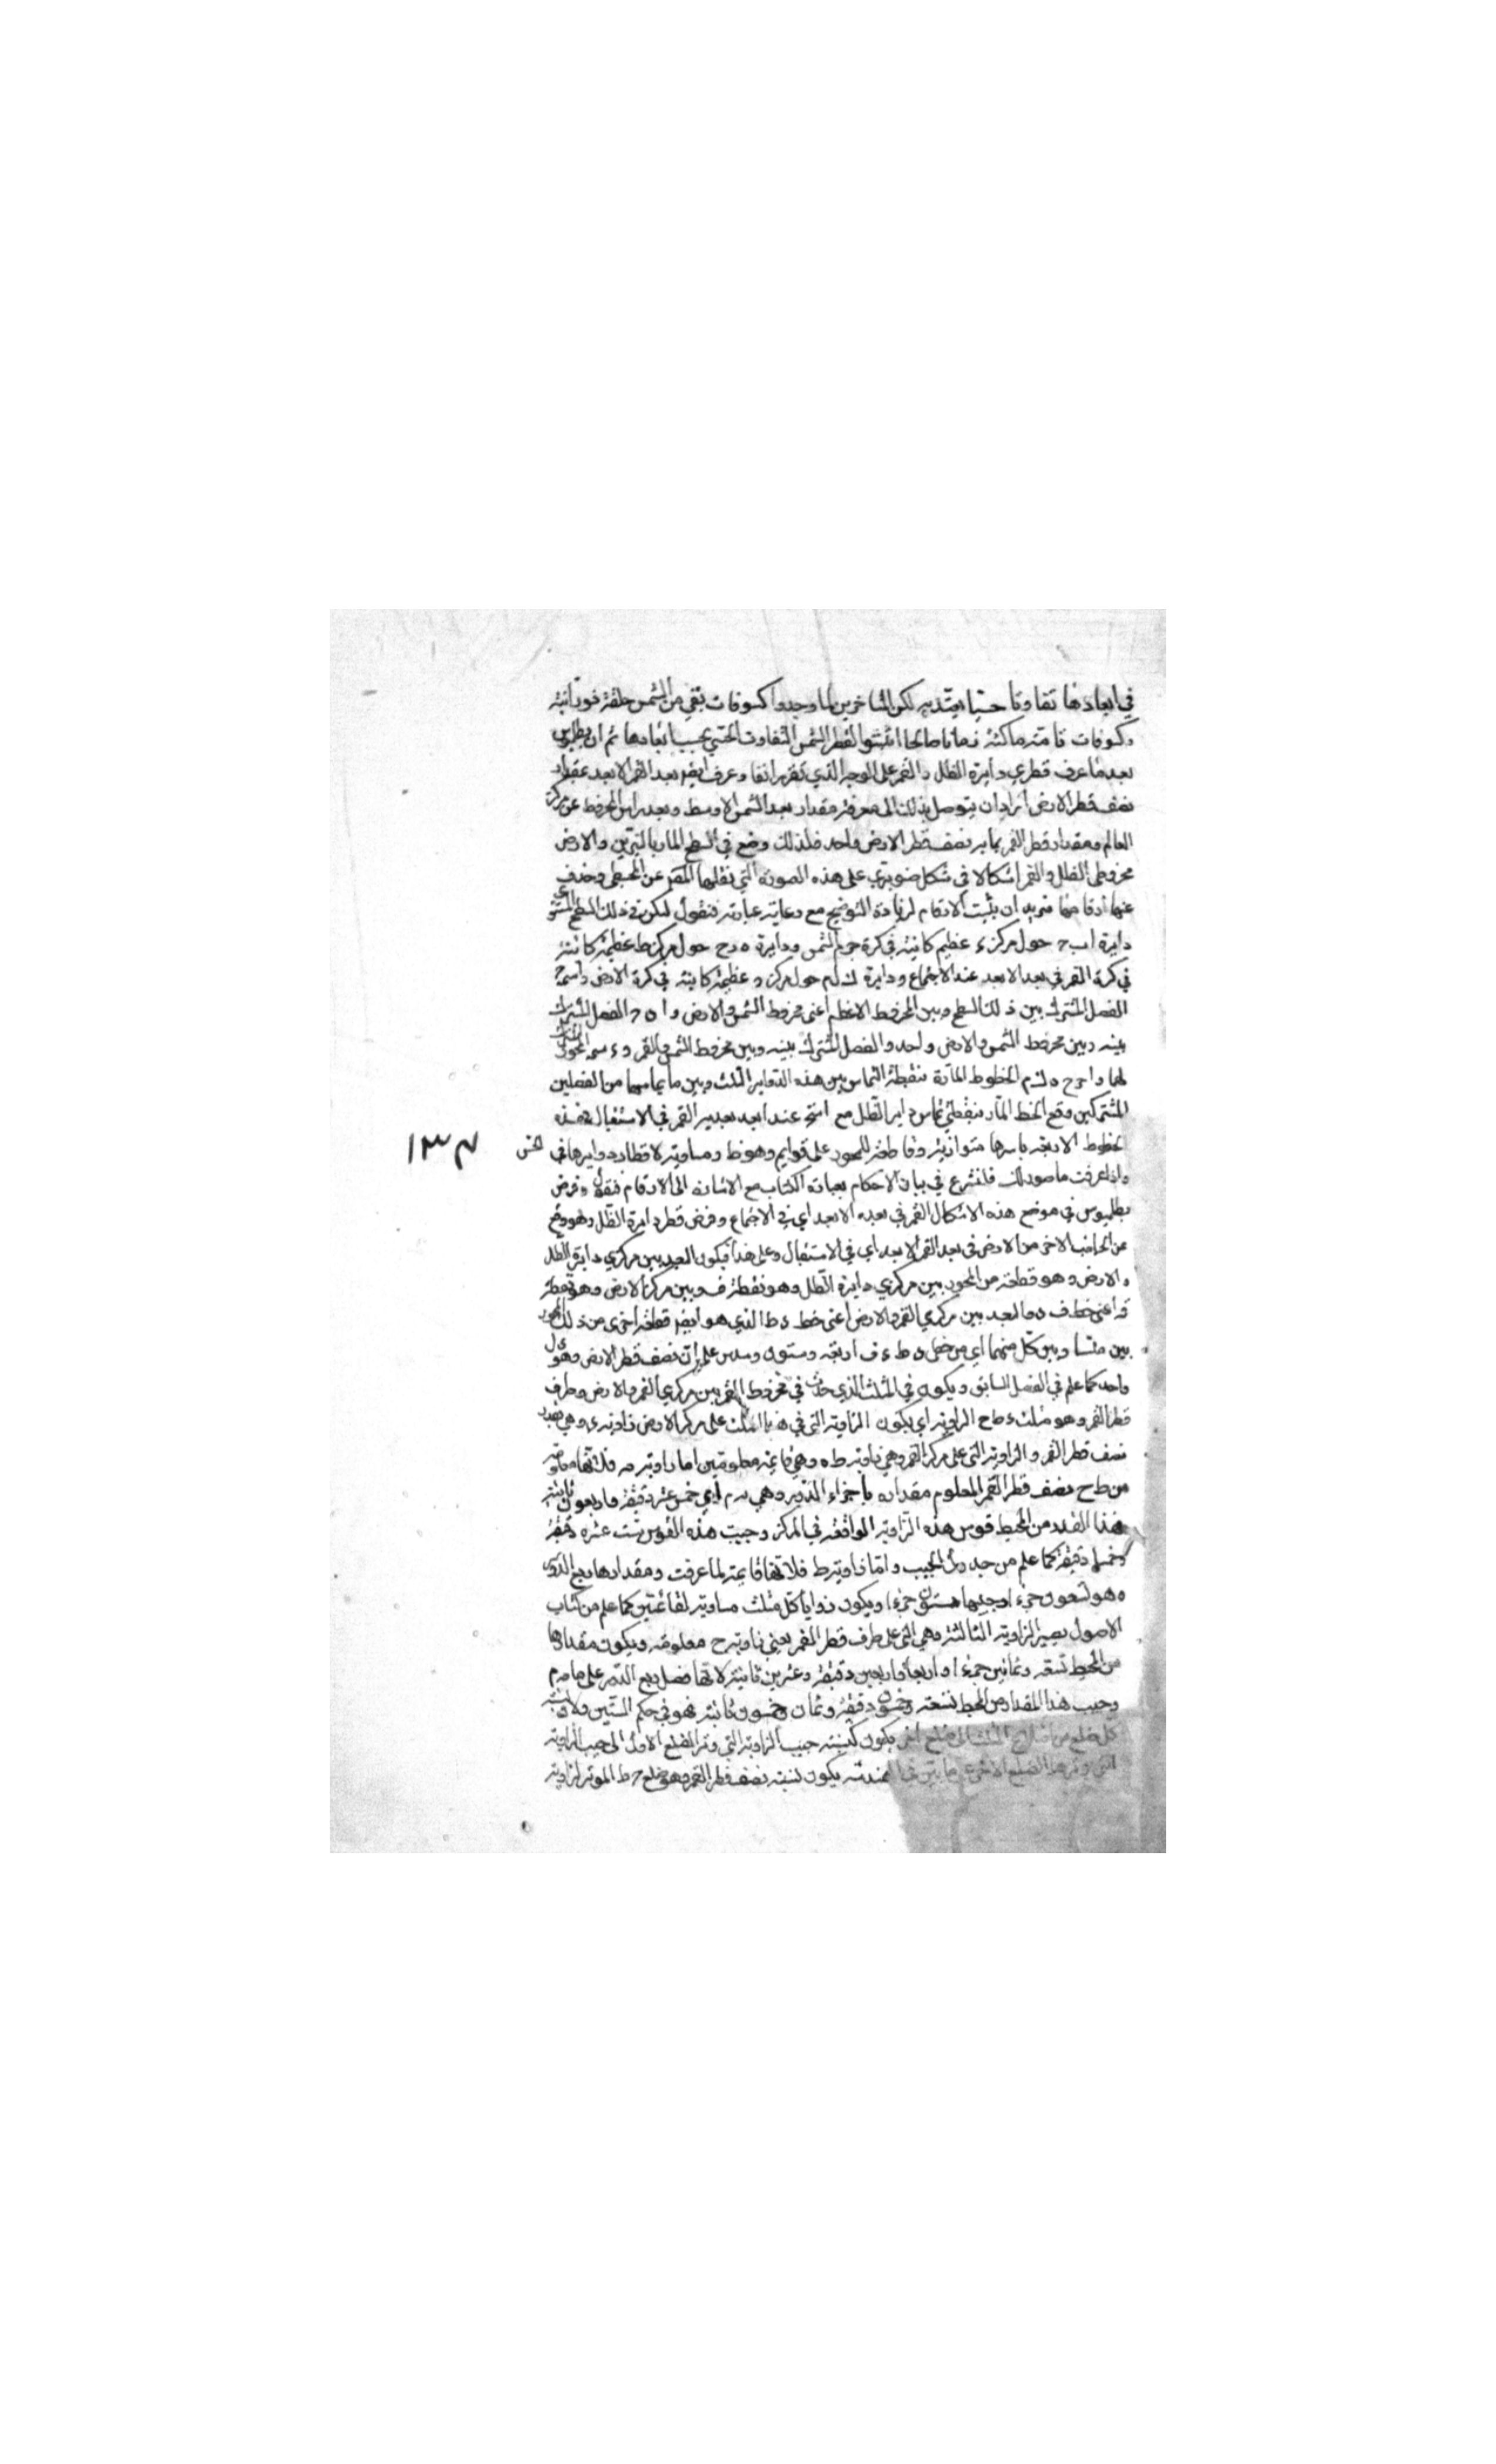 في ابعادها تفاوتا حسيا يعتد به لكن المتاخرين لما وجدوا كسوفات بقي من الشمس حلقة نورانية
وكسوفات تامة ماكثة زمانا صالحا اثبتوا لقطر الشمس التفاوت الحسي بحسب ابعادها ثم ان بطليوس
بعد ما عرف قطري دايرة الظل والقمر على الوجه الذي تقرر انفا وعرف ايضا بعد القمر الابعد بمقدار
نصف قطر الارض اراد ان يتوصل بذلك الى معرفة مقدار بعد الشمس الاوسط وبعد راس المخروط عن مركز
العالم ومقدار قطر القمر بما به نصف قطر الارض واحد فلذلك وضع في السطح المار بالنيرين والارض
مخروطي الظل والقمر اشكالا في شكل صنوبري على هذه الصورة التي نقلها المص عن المجسطي وحذف
عنها ارقامها نريد ان نثبت الارقام لزيادة التوضيح مع رعاية عبارته فنقول ليكن في ذلك السطح المستوي
دايرة ا ب ح حول مركز ء عظيمة كاينة في كرة جرم الشمس ودايرة ه ر ح حول مركز ط عظيمة كاينة
في كرة القمر في بعد الابعد عند الاجتماع ودايرة ك ل م حول مركز و عظيمة كاينة في كرة الارض واسم ح
الفصل المشترك بين ذلك السطح وبين المخروط الاعظم اعني مخروط الشمس والارض و ا ه ح الفصل المشترك
بينه وبين مخروط الشمس والارض واحد والفصل المشترك بينه وبين مخروط الشمس والقمر و ء س المحور المشترك
لهما و ا ح ح ه ك م الخطوط المارة بنقطة التماس بين هذه الدواير الثلث وبين ما يماسها من الفصلين
المشتركين وقع الخط المار بنقطتي تماس دايرة الظل مع عند ابعد بعدي القمر في الاستقبال فهذه
الخطوط الاربعة باسرها متوازية وقاطعة للمحور على قوايم وهو ظ ومساوية لاقطار دوايرها في الحس
واذا عرفت ما صور لك فلنشرع في بيان الاحكام بعبارة الكتاب مع الاشارة الى الارقام فنقول وفرض
بطليوس في موضع هذه الاشكال القمر في بعده الابعد اي في الاجتماع وفرض قطر دايرة الظل وهو وقع
عن الجانب الاخر من الارض في بعد القمر الابعد اي في الاستقبال وعلى هذا فيكون البعد بين مركزي دايرة الظل
والارض وهو قطعة من المحور بين مركزي دايرة الظل وهو نقطة ف وبين مركز الارض وهو نقطة
ه اعني خط ف ه والبعد بين مركزي القمر والارض اعني خط ه ط الذي هو ايضا قطعة اخرى من ذلك المحور
بين متسا وبين كل منهما اي من خطي ه ط ء ف اربعة وستون وسدس على ان نصف قطر الارض وهو ل
واحد كما علم في الفصل السابق ويكون في المثلث الذي حدث في مخروط القمر بين مركزي القمر والارض وطرف
قطر القمر وهو مثلث ء ط ح الزاوية اي يكون الزاوية التي في هذا المثلث على مركز الارض زاوية ء وهي بقدر
نصف قطر القمر والزاوية التي على مركز القمر وهي زاوية ط ه وهي قايمة معلومتين اما زاوية ه فلانها معلومة
من ط ح نصف قطر القمر المعلوم مقداره باجزاء الدور وهي يه م اي خمس عشر دقيقة واربعون ثانية
هذا القدر من المحيط قوس هذه الزاوية الواقعة في المركز وجيب هذه القوس ست عشرة دقيقة
دقيقة كما علم من جدول الجيب واما زاوية ط فلانها قايمة لما عرفت ومقدارها ربع الدور
وهو تسعون جزءا وجيبها ستون جزءا ويكون زوايا كل مثلث مساوية لقائمتين كما علم من كتاب
الاصول يصير الزاوية الثالثة وهي التي على طرف قطر القمر يعني زاوية ح معلومة ويكون مقدارها
من المحيط تسعة وثمانين جزءا واربعا واربعين دقيقة وعشرين ثانية لانها فضل ربع الدور على ما مر م
وجيب هذا المقدار من المحيط تسعة وخمسون دقيقة وثمان وخمسون ثانية فهو في حكم الستين ولان نسبة
كل ضلع من اضلاع المثلث الى ضلع اخر يكون كنسبة جيب الزاوية التي وترها الضلع الاول الى جيب الزاوية
التي وترها الضلع الاخر على ما بين في الهندسة يكون نسبة نصف قطر القمر وهو ضلع ح ط الموتر لزاوية